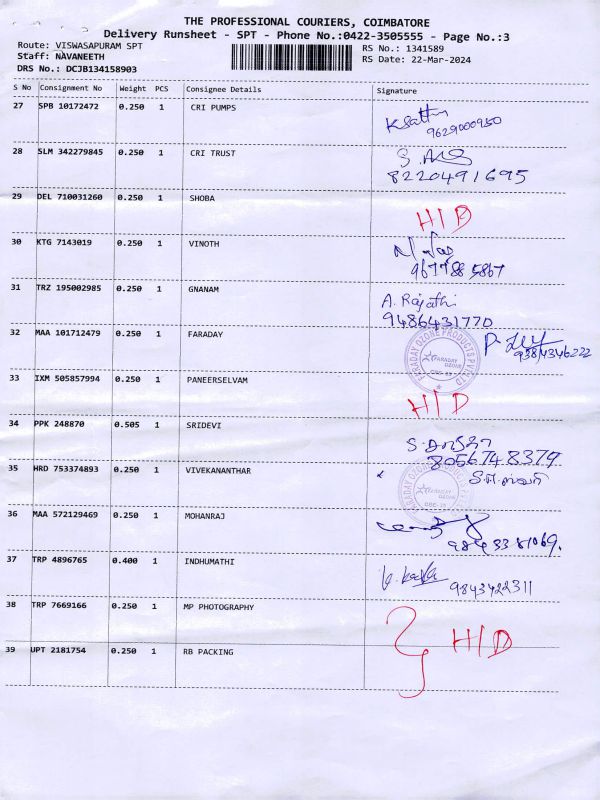 THE PROFESSIONAL COURIERS, COIMBATORE
Delivery Runsheet - SPT - Phone No.:0422-3505555 - Page No.:3
Route: VISWASAPURAM SPT
RS No.: 1341589
Staff: NAVANEETH
RS Date: 22-Mar-2024
DRS No.: DCJB134158903
S No Consignment No Weight PCS Consignee Details Signature
27 SPB 10172472 0.250 1 CRI PUMPS
9629000950
28 SLM 342279845 0.250 1 CRI TRUST
8220491695
29 DEL 710031260 0.250 1 SHOBA H/D
30 KTG 7143019 0.250 1 VINOTH
9677885867
31 TRZ 195002985 0.250 1 GNANAM A. Rajathi
9486431770
32 MAA 101712479 0.250 1 FARADAY
FARADAY OZONE PRODUCTS PVT LTD
FARADAY OZONE
33 IXM 505857994 0.250 1 PANEERSELVAM H/D
34 PPK 248870 0.505 1 SRIDEVI
8056748379
35 HRD 753374893 0.250 1 VIVEKANANTHAR
FARADAY
36 MAA 572129469 0.250 1 MOHANRAJ
37 TRP 4896765 0.400 1 INDHUMATHI
9843422311
38 TRP 7669166 0.250 1 MP PHOTOGRAPHY
H/D
39 UPT 2181754 0.250 1 RB PACKING